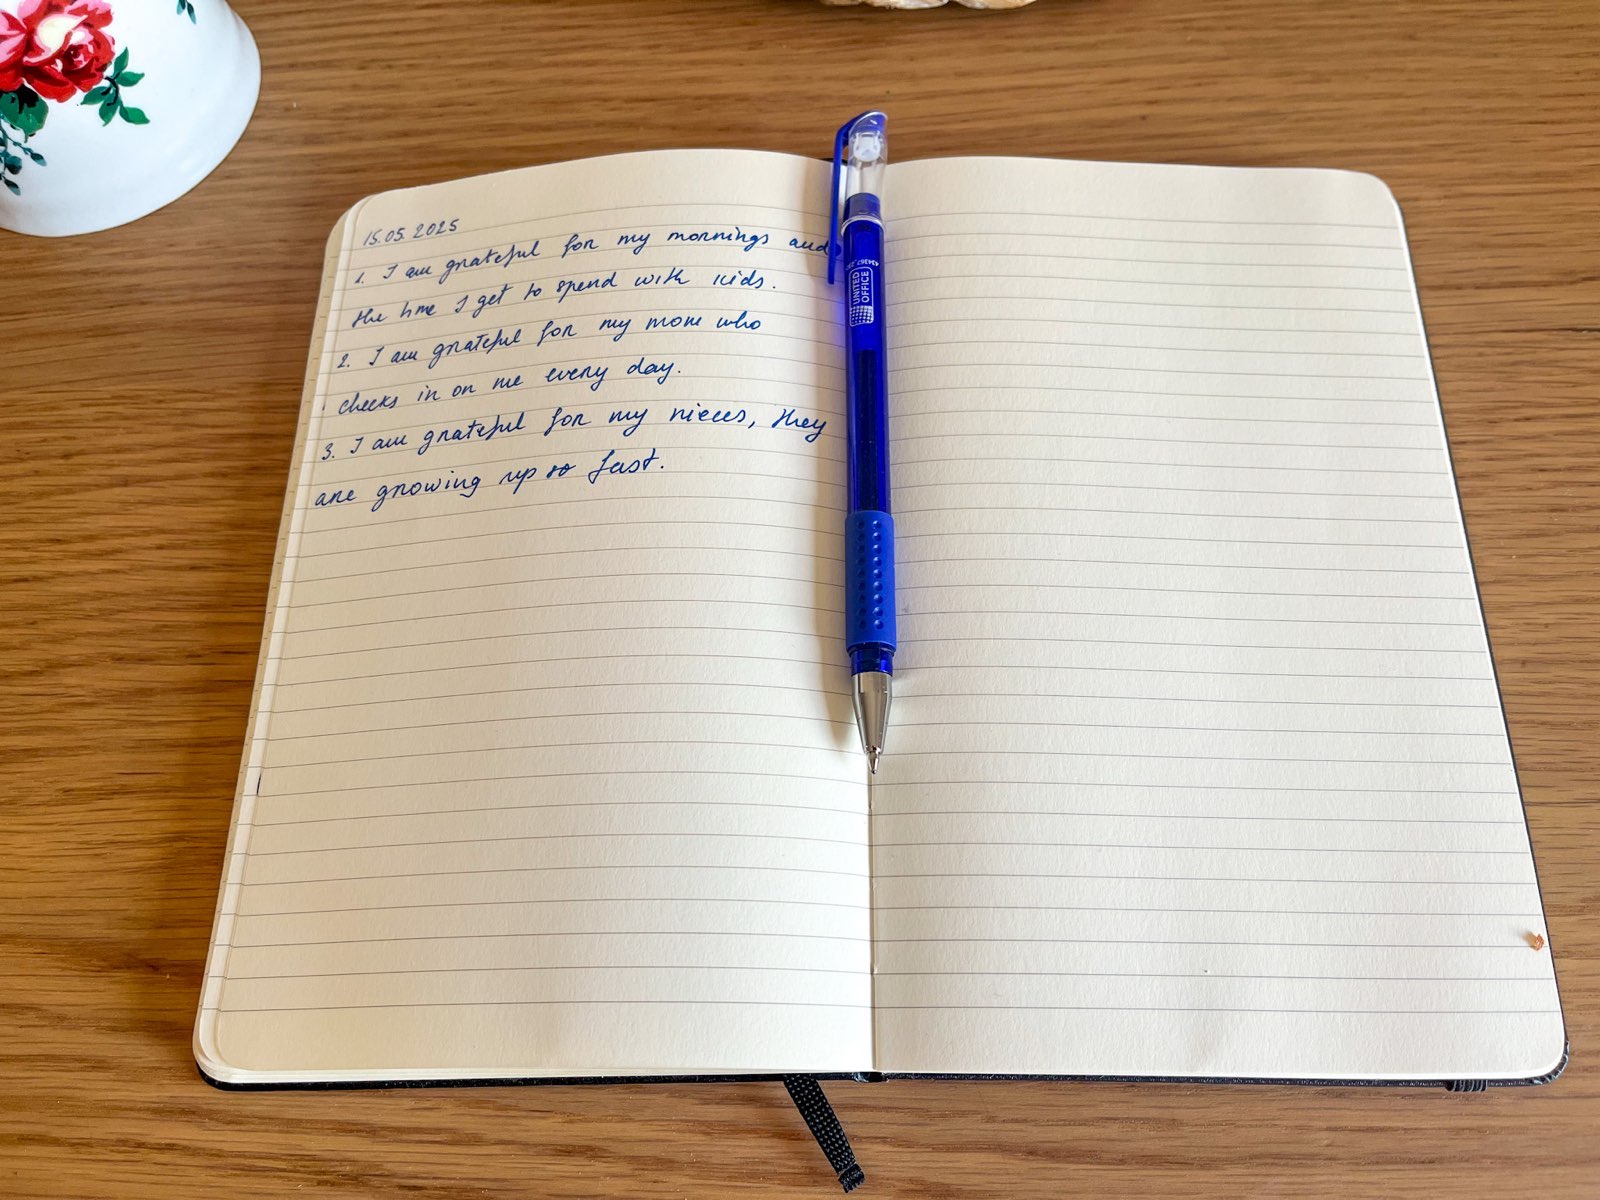 15.05.2025
1. I am grateful for my mornings and
the time I get to spend with kids.
2. I am grateful for my mom who
checks in on me every day.
3. I am grateful for my nieces, they
are growing up so fast.
UNITED
OFFICE